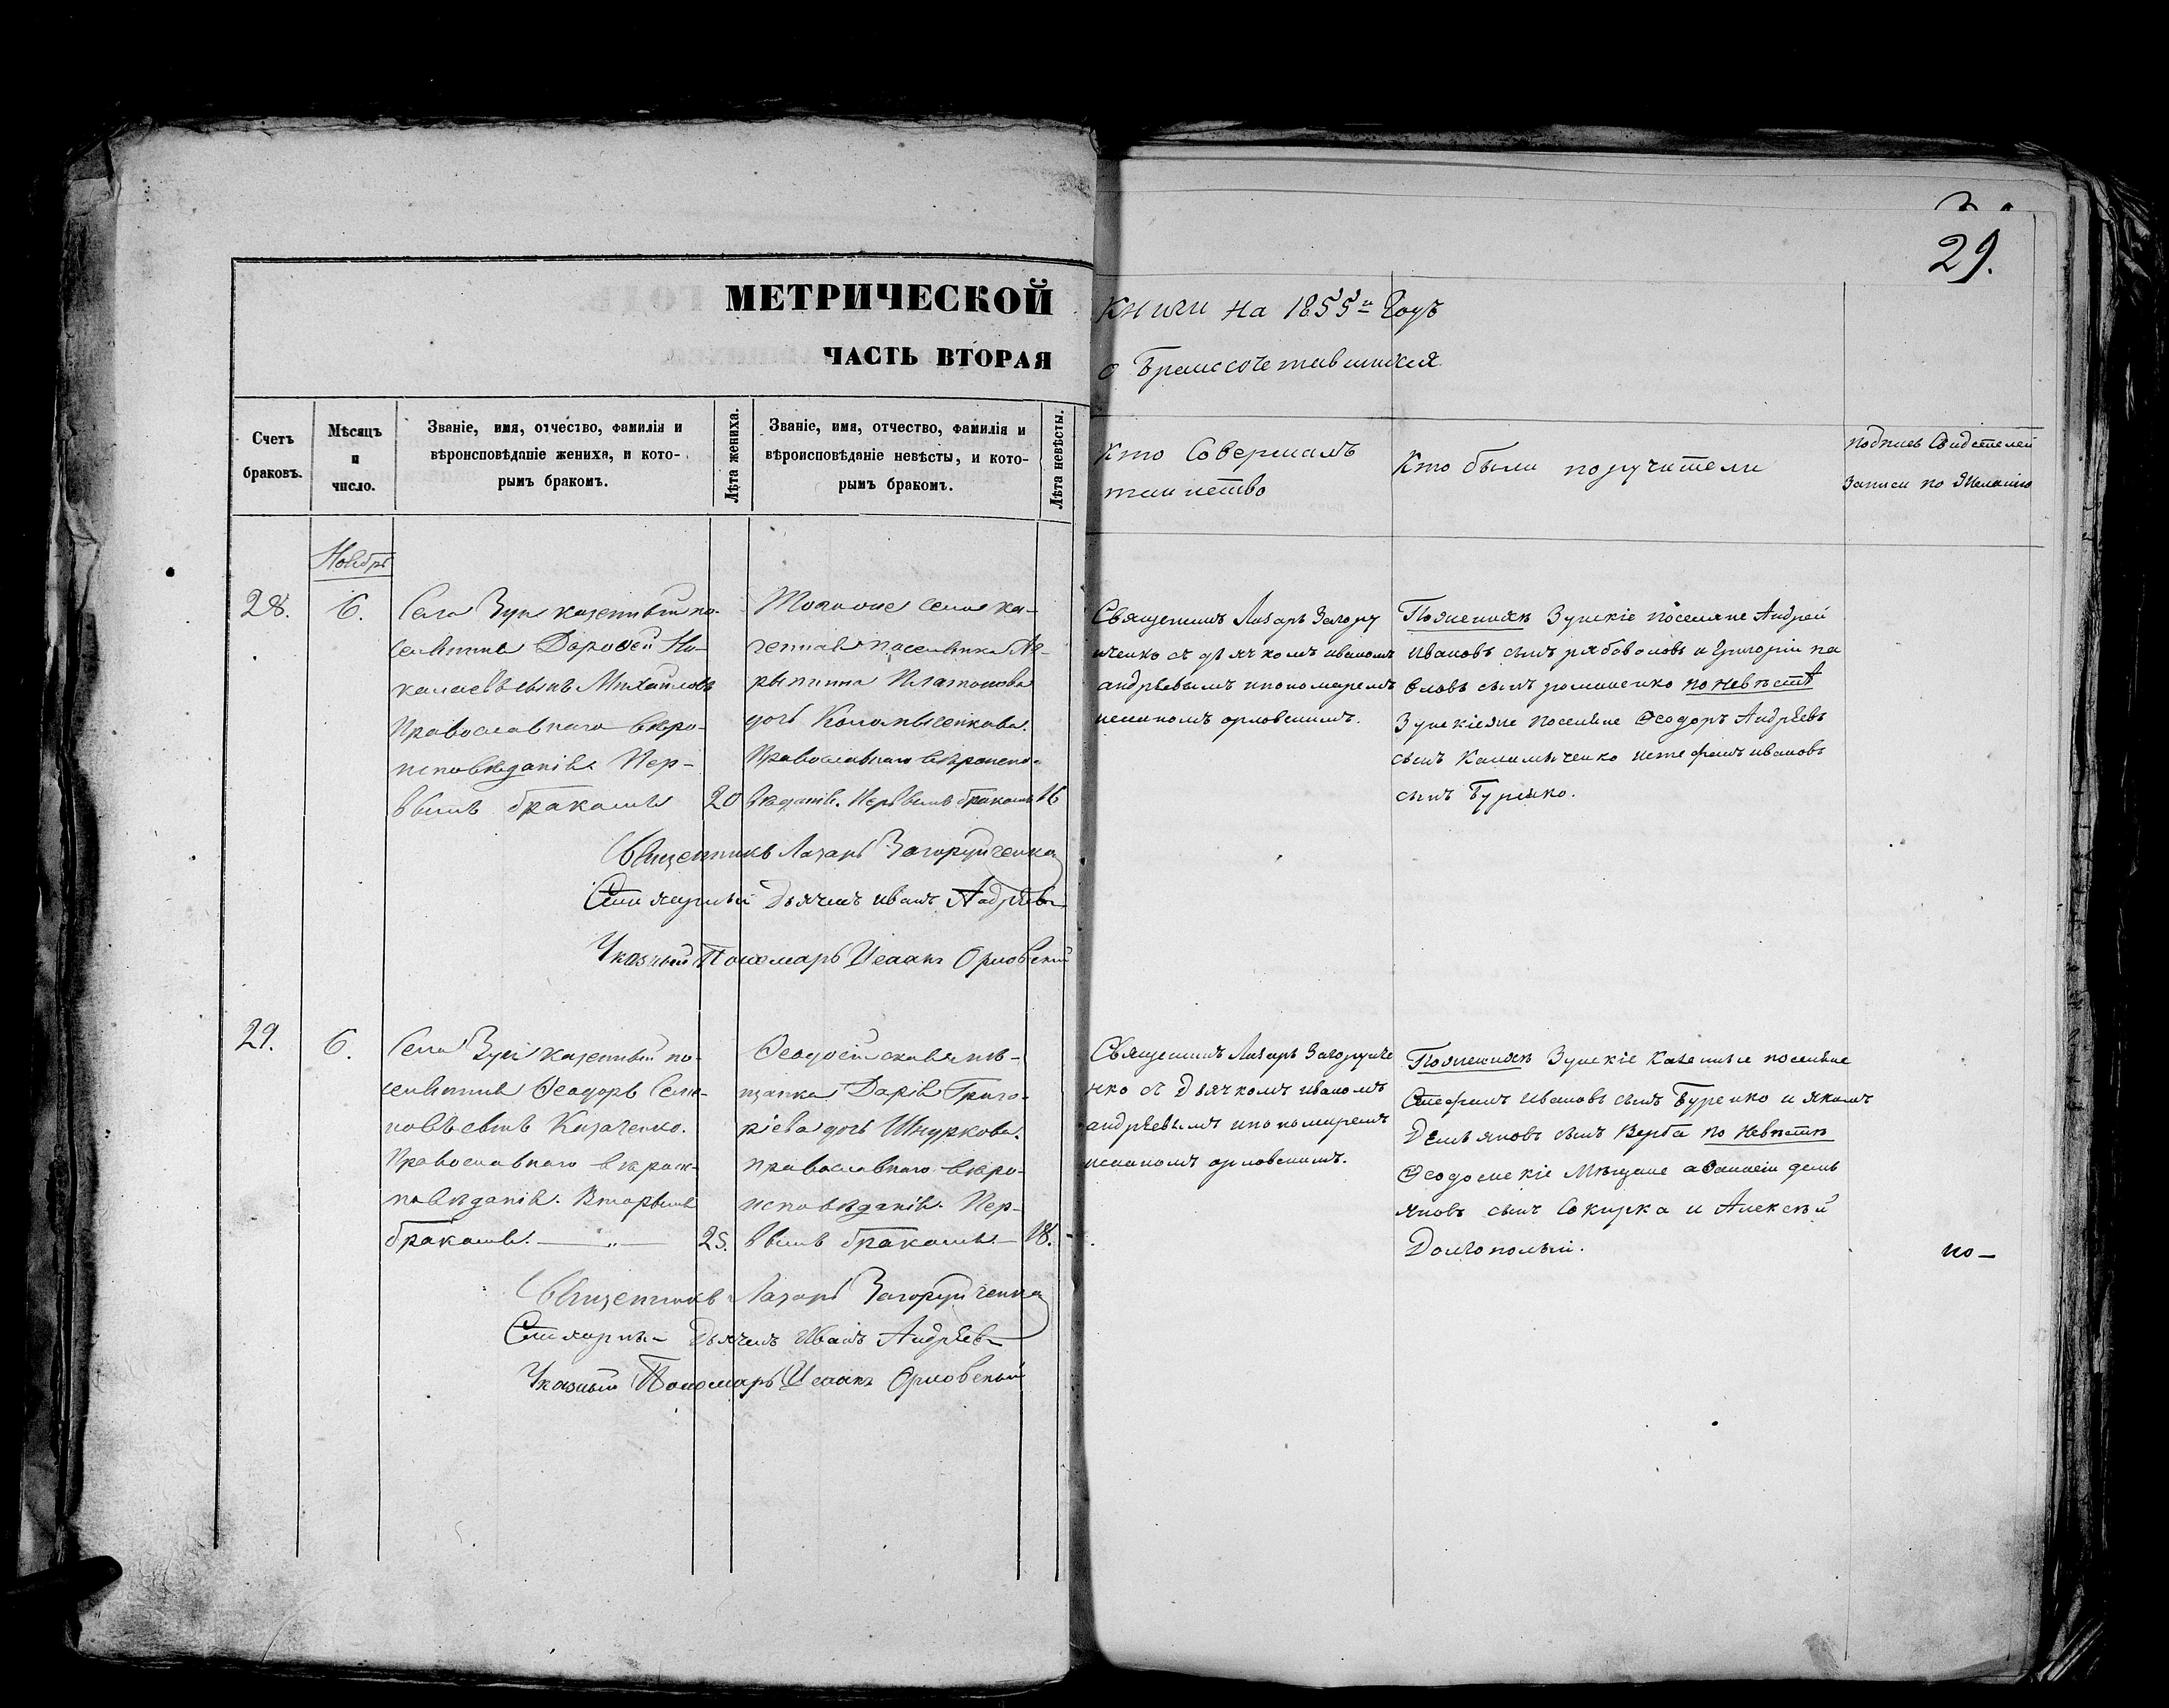 29.
МЕТРИЧЕСКОЙ
ЧАСТЬ ВТОРАЯ
книги на 1855й Годъ
о Бракосочетавшихся
Счетъ
браковъ.
Мѣсяцъ
и
число.
Званіе, имя, отчество, фамилія и
вѣроисповѣданіе жениха, и кото-
рымъ бракомъ.
Лѣта жениха.
Званіе, имя, отчество, фамилія и
вѣроисповѣданіе невѣсты, и кото-
рымъ бракомъ.
Лѣта невѣсты.
Кто Совершалъ
таинство
Кто были поручители
подпись Свидѣтелей
Записи по Желанію
Ноябрь
28.
6.
Села Зуи казенный по-
селянинъ Дороѳей Ни-
колаевъ сынъ Михайловъ
Православнаго вѣро-
исповѣданія. Пер-
вымъ бракомъ
20
Тогоже села ка-
зенная поселянка
Платонова
дочь
Православнаго вѣроиспо-
вѣданія. Первымъ бракомъ
16
Священникъ Лазарь Загоруй
ченко съ дьячкомъ иваномъ
андрѣевымъ и пономаремъ
исакомъ орловскимъ.
По женихѣ Зуискіе поселяне Андрей
Ивановъ сынъ рябоволовъ и Григорій па
вловъ сынъ романенко по невѣстѣ
Зускіеяне поселяне Ѳеодоръ Андрѣевъ
сынъ и стефанъ ивановъ
сынъ Буренко.
Священникъ Лазарь Загоруйченко
Стихарный Дьячекъ иванъ Андрѣевъ
Указный Пономарь Исаакъ Орловский
29.
6.
Села Зуи казенный по-
селянинъ Ѳеодоръ Семе-
новъ сынъ Казаченко.
Православнаго вѣроис-
повѣданія. Вторымъ
бракомъ. — „ —
25.
Ѳеодосійская мѣ-
щанка Дарія Григо-
ріева дочь Шнуркова.
православнаго вѣро-
исповѣданія. Пер-
вымъ бракомъ. —
18.
Священникъ Лазарь Загоруйче
нко съ Дьячкомъ иваномъ
андрѣевымъ и пономаремъ
исакомъ орловскимъ.
По женихѣ Зуискіе Казенные поселяне
Стефанъ ивановъ сынъ Буренко и якимъ
Демьяновъ сынъ Верба по невѣстѣ
Ѳеодосискіе Мѣщане аѳанасій демь
яновъ сынъ Сокирка и Алексѣй
Долгополый.
по —
Священникъ Лазарь Загоруйченко
Стихарный Дьячекъ Иванъ Андрѣевъ
Указный Пономарь Исаакъ Орловский